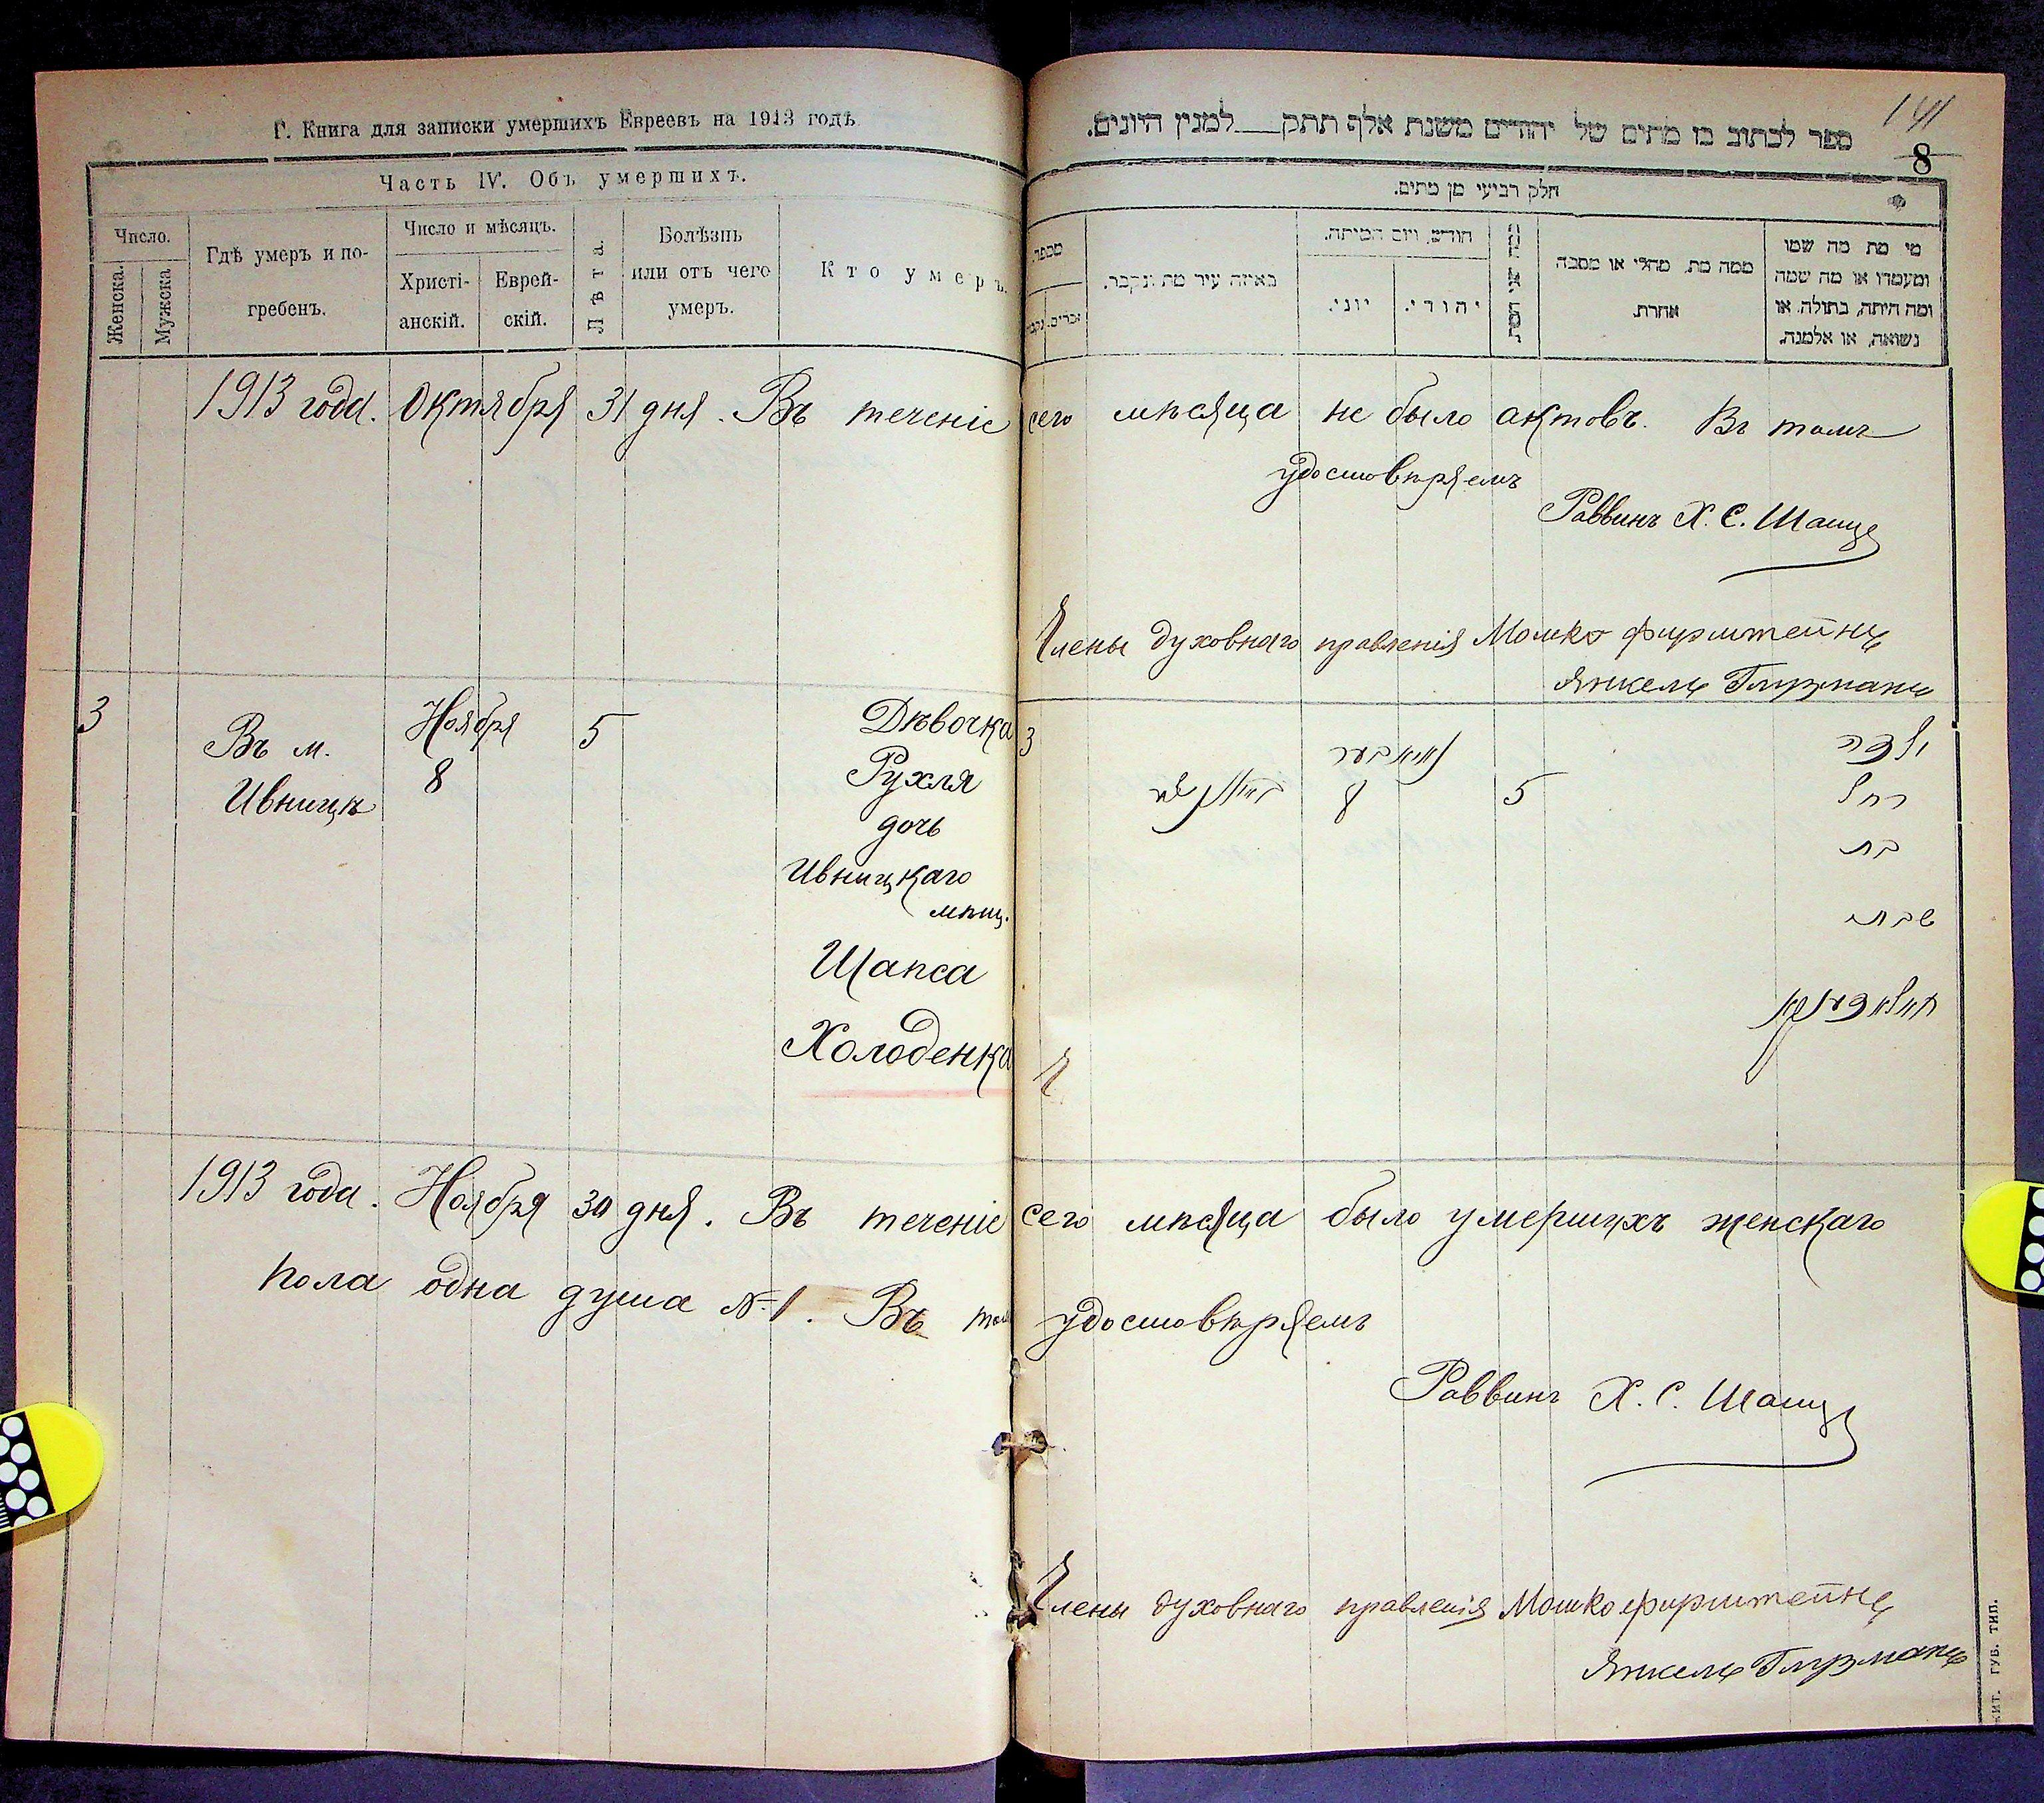 Г. Книга для записки умершихъ Евреевъ на 1913 годъ
Часть IV. Объ умершихъ.
Число.
Женска.
Мужска
Гдѣ умеръ и по-
гребенъ.
Число и мѣсяцъ.
Христі-
анскій.
Еврей-
скій.
Лѣта.
Болѣзнь
или отъ чего
умеръ.
Кто умеръ.
141
ספר לכתוב בו מתים של יהודים משנת אלף תתק למנין היונים.
8
חלק רביעי מן מתים.
מספר.
זכרים.
באיזה עיר מת ונקבר.
חודש, ויום המיתה.
יוני.
יהודי.
ממה מת, מחלי או מסבה
אחרת.
מי מת מה שמו
ומעמדו או מה שמה
ומה היתה, בתולה, או
נשואה, או אלמנה.
1913 года. Октября 31 дня. Въ теченіе сего мѣсяца не было актовъ. Въ томъ
удостовѣряемъ
Раввинъ Х. С.
Члены духовнаго правленія Мошко Фирштейнъ
Янкель
3
Въ м.
Ивницѣ
Ноября
8
5
Дѣвочка
Рухля
дочь
Ивницкаго
мѣщ.
Шапса
Холоденка
3
נויאבער
8
5
ילדה
רחל
בת
שבת
חאלאדענקא
1913 года. Ноября 30 дня. Въ теченіе сего мѣсяца было умершихъ женскаго
пола одна душа №1. Въ томъ удостовѣряемъ
Раввинъ Х. С.
Члены духовнаго правленія Мошко Фирштейнъ
Янкель
ЖИТ. ГУБ. ТИП.